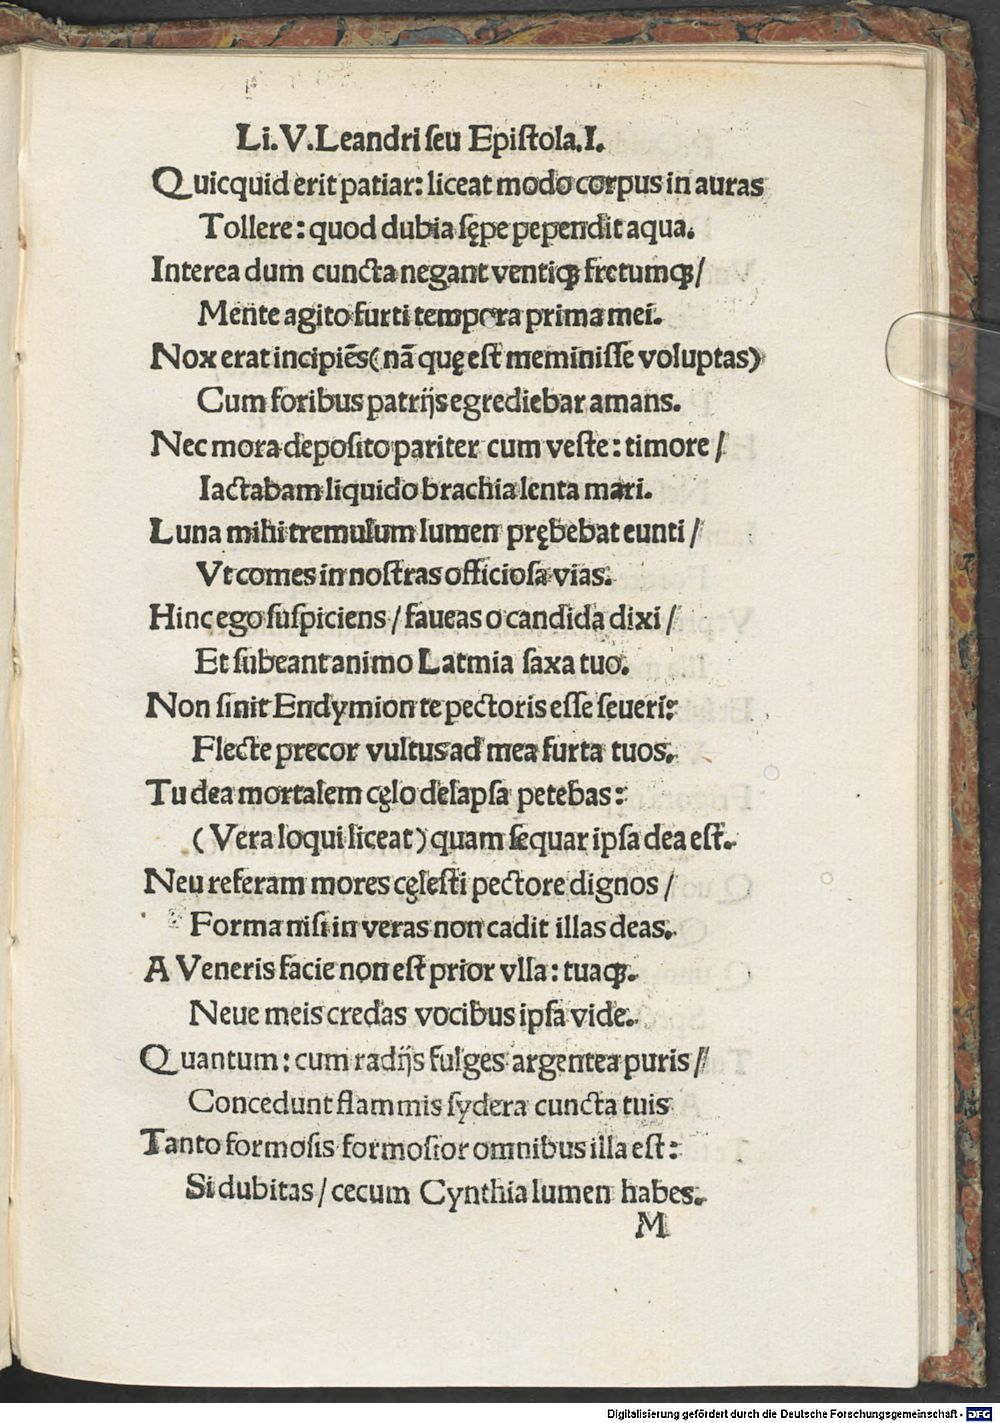 Li. V. Leandri ſeu Epiſtola. I.
Quicquid erit patiar: liceat modo corpus in auras
Tollere: quod dubia ſępe pependit aqua.
Interea dum cuncta negant ventiqꝫ fretumqꝫ/
Mente agito furti tempora prima mei.
Nox erat incipiēs (nā quę eſt meminiſſe voluptas)
Cum foribus patrijs egrediebar amans.
Nec mora depoſito pariter cum veſte: timore/
Iactabam liquido brachia lenta mari.
Luna mihi tremulum lumen prębebat eunti/
Vt comes in noſtras officioſa vias.
Hinc ego ſuſpiciens/ faueas o candida dixi/
Et ſubeant animo Latmia ſaxa tuo.
Non ſinit Endymion te pectoris eſſe ſeueri:
Flecte precor vultus ad mea furta tuos.
Tu dea mortalem cęlo delapſa petebas:
(Vera loqui liceat) quam ſequar ipſa dea eſt.
Neu referam mores cęleſti pectore dignos/
Forma niſi in veras non cadit illas deas.
A Veneris facie non eſt prior vlla: tuaqꝫ.
Neue meis credas vocibus ipſa vide.
Quantum: cum radijs fulges argentea puris/
Concedunt flammis ſydera cuncta tuis
Tanto formoſis formoſior omnibus illa eſt:
Si dubitas/ cecum Cynthia lumen habes.
M
Digitalisierung gefördert durch die Deutsche Forschungsgemeinschaft - DFG